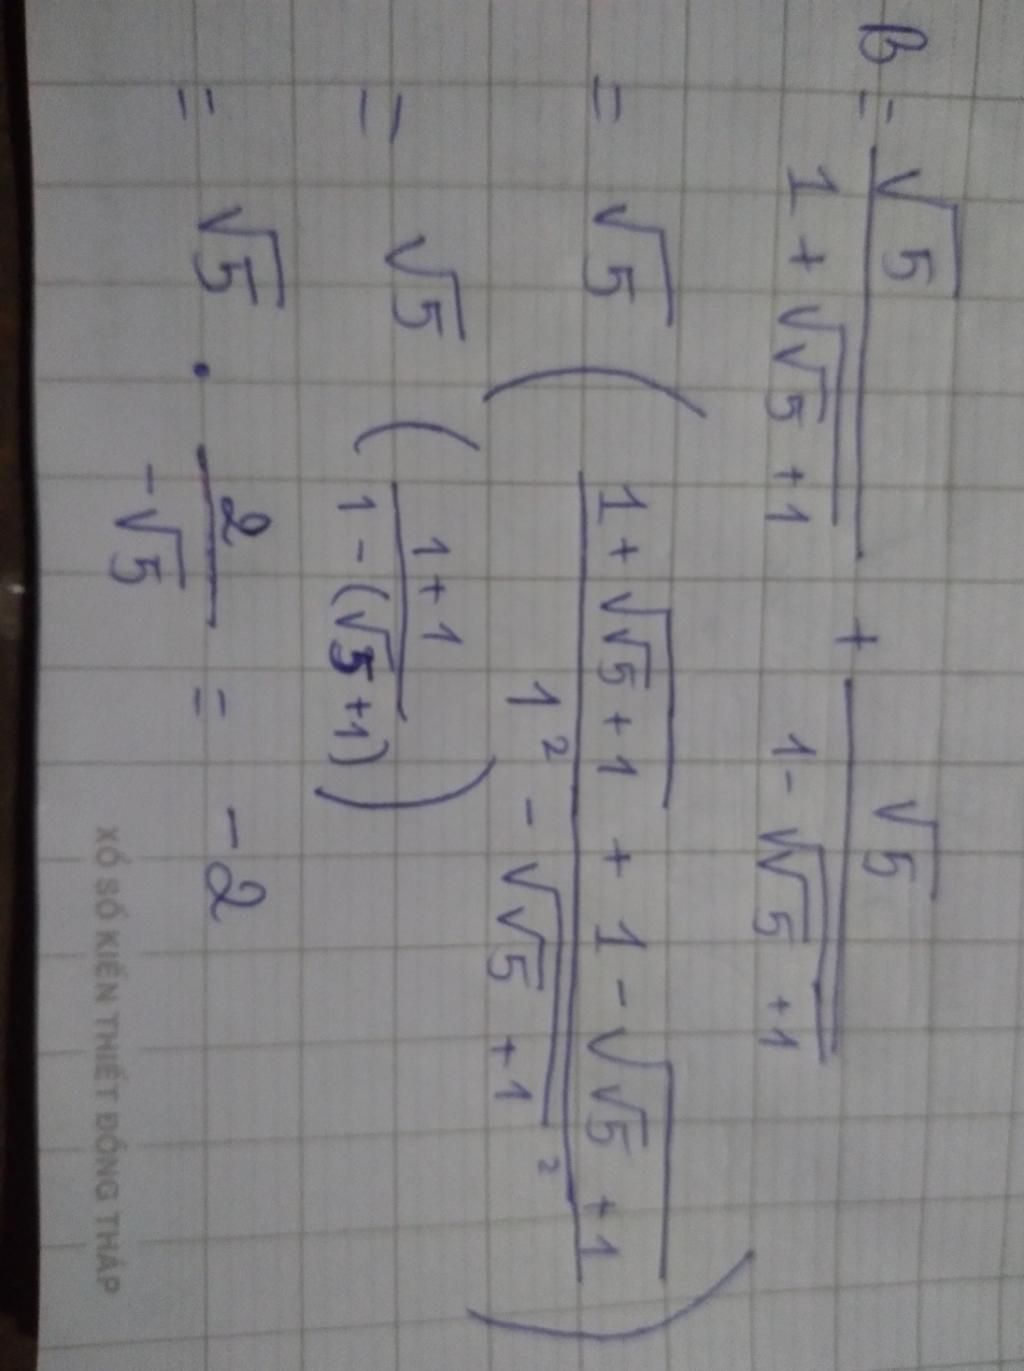 B = √5 / (1 + √(√5 + 1)) + √5 / (1 - √(√5 + 1))
= √5 ( (1 + √(√5 + 1) + 1 - √(√5 + 1)) / (1² - √(√5 + 1)²) )
= √5 ( (1 + 1) / (1 - (√5 + 1)) )
= √5 . 2 / (-√5) = -2
XỔ SỐ KIẾN THIẾT ĐỒNG THÁP